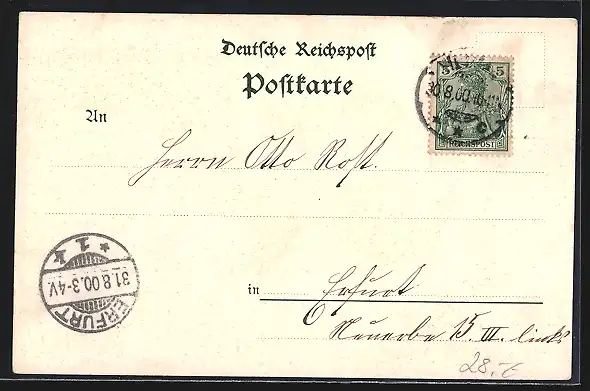 Deutsche Reichspost
Postkarte
5 5
30.8.00
REICHSPOST
C
An
Herrn Otto Rost.
* 1 k *
31.8.00.3-4V.
ERFURT
in Erfurt
Neuerbe 15 III. links
28.-